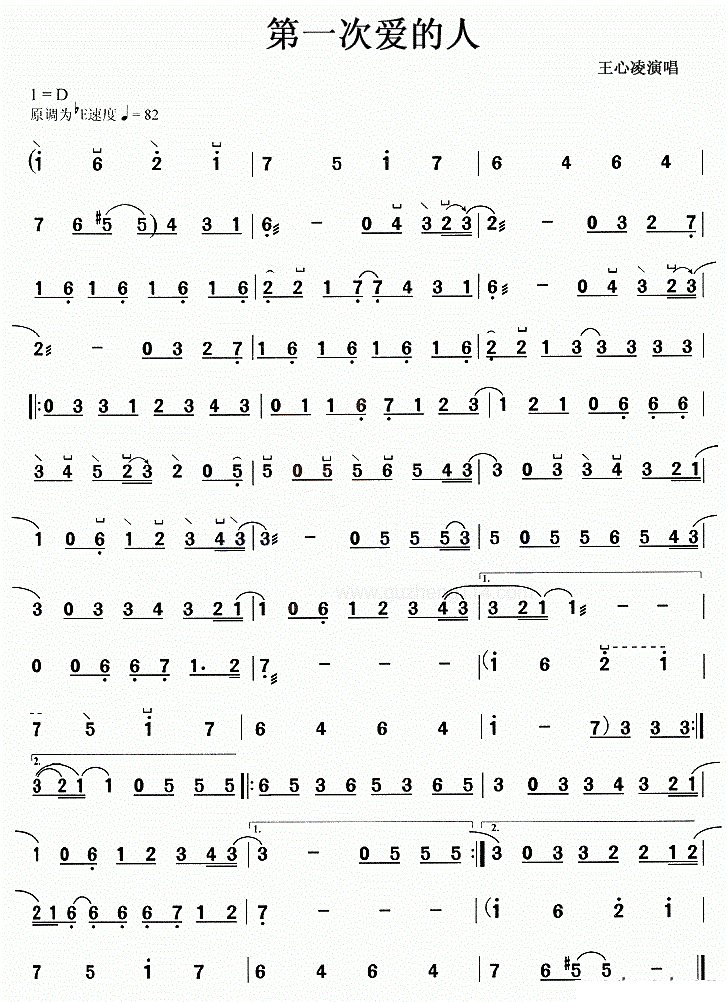 第一次爱的人
王心凌演唱
1 = D
原调为♭E速度♩= 82
(i̇ 6 2̇ i̇ | 7 5 i̇ 7 | 6 4 6 4 |
7 6 #5 5) 4 3 1 | 6̣ – 0 4 3 2 3 | 2 – 0 3 2 7̣ |
1 6̣ 1 6̣ 1 6̣ 1 6̣ | 2̣ 2̣ 1 7̣ 7̣ 4 3 1 | 6̣ – 0 4 3 2 3 |
2 – 0 3 2 7̣ | 1 6̣ 1 6̣ 1 6̣ 1 6̣ | 2̣ 2 1 3 3 3 3 3 |
‖: 0 3 3 1 2 3 4 3 | 0 1 1 6̣ 7̣ 1 2 3 | 1 2 1 0 6̣ 6̣ 6̣ |
3 4 5 2 3 2 0 5̣ | 5 0 5 5 6 5 4 3 | 3 0 3 3 4 3 2 1 |
1 0 6̣ 1 2 3 4 3 | 3 – 0 5 5 5 3 | 5 0 5 5 6 5 4 3 |
3 0 3 3 4 3 2 1 | 1 0 6̣ 1 2 3 4 3 | 1. 3 2 1 1 – – |
0 0 6̣ 6̣ 7̣ 1. 2 | 7̣ – – – | (i̇ 6 2̇ i̇ |
7 5 i̇ 7 | 6 4 6 4 | i̇ – 7) 3 3 3 :‖
2. 3 2 1 1 0 5 5 5 ‖: 6 5 3 6 5 3 6 5 | 3 0 3 3 4 3 2 1 |
1 0 6̣ 1 2 3 4 3 | 1. 3 – 0 5 5 5 :‖ 2. 3 0 3 3 2 2 1 2 |
2 1 6̣ 6̣ 6̣ 6̣ 7̣ 1 2 | 7̣ – – – | (i̇ 6 2̇ i̇ |
7 5 i̇ 7 | 6 4 6 4 | 7 6 #5 5 – – ‖